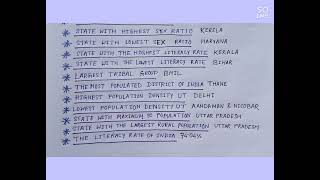 STATE WITH HIGHEST SEX RATIO KERELA
STATE WITH LOWEST SEX RATIO HARYANA
STATE WITH THE HIGHEST LITERACY RATE KERALA
STATE WITH THE LOWEST LITERACY RATE BIHAR
LARGEST TRIBAL GROUP BHIL
THE MOST POPULATED DISTRICT OF INDIA THANE
HIGHEST POPULATION DENSITY UT DELHI
LOWEST POPULATION DENSITY UT AANDAMAN & NICOBAR
STATE WITH MAXIMUM % POPULATION UTTAR PRADESH
STATE WITH THE LARGEST RURAL POPULATION UTTAR PRADESH
THE LITERACY RATE OF INDIA 74.04%